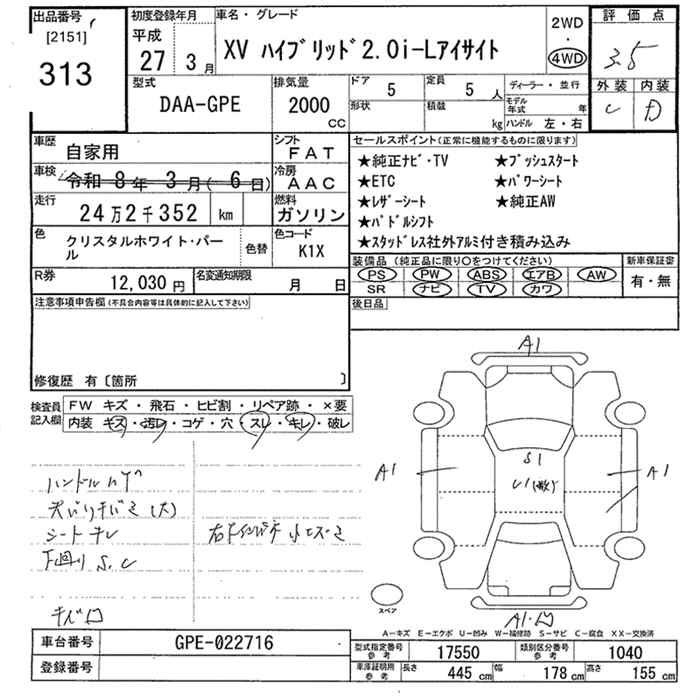 出品番号
[2151]
313
初度登録年月
平成
27 3 月
車名・グレード
XV ハイブリッド2.0i-Lアイサイト
2WD
・
4WD
評価点
3.5
外装 内装
C D
型式
DAA-GPE
排気量
2000
CC
ドア
5
定員
5 人
形状
積載
kg
ディーラー・並行
モデル年式 年
ハンドル 左・右
車歴
自家用
シフト
FAT
車検
令和 8年 3月( 6日)
冷房
AAC
走行
24万2千352 km
燃料
ガソリン
色
クリスタルホワイト・パール
色替
色コード
K1X
R券
12,030 円
名変通知期限
月 日
セールスポイント(正常に機能するものに限ります)
★純正ナビ・TV ★プッシュスタート
★ETC ★パワーシート
★レザーシート ★純正AW
★パドルシフト
★スタッドレス社外アルミ付き積み込み
装備品(純正品に限り○をつけてください)
PS PW ABS エアB AW
SR ナビ TV カワ
新車保証書
有・無
後日品
注意事項申告欄(不具合内容等は具体的に記入して下さい)
修復歴 有〔箇所 〕
検査員記入欄
FW キズ・飛石・ヒビ割・リペア跡・×要
内装 キズ・汚レ・コゲ・穴・スレ・キレ・破レ
シートキレ
下回りS.C
A1
S1
U1
A1
A1
A1
スペア
A-キズ E-エクボ U-凹み W-補修跡 S-サビ C-腐食 XX-交換済
車台番号
GPE-022716
登録番号
型式指定番号参考
17550
類別区分番号参考
1040
車庫証明用参考
長さ 445 cm
幅 178 cm
高さ 155 cm